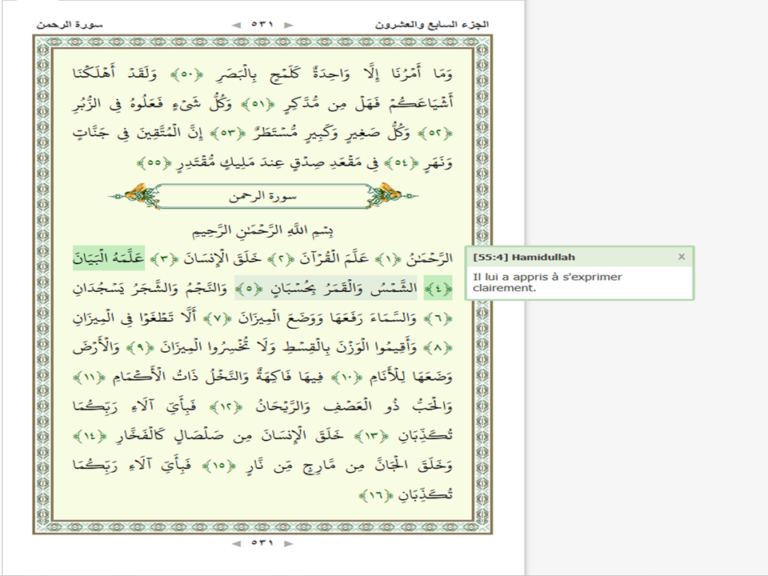 الجزء السابع والعشرون
٥٣١
سورة الرحمن
وَمَا أَمْرُنَا إِلَّا وَاحِدَةٌ كَلَمْحٍ بِالْبَصَرِ ﴿٥٠﴾ وَلَقَدْ أَهْلَكْنَا
أَشْيَاعَكُمْ فَهَلْ مِن مُّدَّكِرٍ ﴿٥١﴾ وَكُلُّ شَيْءٍ فَعَلُوهُ فِي الزُّبُرِ
﴿٥٢﴾ وَكُلُّ صَغِيرٍ وَكَبِيرٍ مُّسْتَطَرٌ ﴿٥٣﴾ إِنَّ الْمُتَّقِينَ فِي جَنَّاتٍ
وَنَهَرٍ ﴿٥٤﴾ فِي مَقْعَدِ صِدْقٍ عِندَ مَلِيكٍ مُّقْتَدِرٍ ﴿٥٥﴾
سورة الرحمن
بِسْمِ اللَّهِ الرَّحْمَٰنِ الرَّحِيمِ
الرَّحْمَٰنُ ﴿١﴾ عَلَّمَ الْقُرْآنَ ﴿٢﴾ خَلَقَ الْإِنسَانَ ﴿٣﴾ عَلَّمَهُ الْبَيَانَ
﴿٤﴾ الشَّمْسُ وَالْقَمَرُ بِحُسْبَانٍ ﴿٥﴾ وَالنَّجْمُ وَالشَّجَرُ يَسْجُدَانِ
﴿٦﴾ وَالسَّمَاءَ رَفَعَهَا وَوَضَعَ الْمِيزَانَ ﴿٧﴾ أَلَّا تَطْغَوْا فِي الْمِيزَانِ
﴿٨﴾ وَأَقِيمُوا الْوَزْنَ بِالْقِسْطِ وَلَا تُخْسِرُوا الْمِيزَانَ ﴿٩﴾ وَالْأَرْضَ
وَضَعَهَا لِلْأَنَامِ ﴿١٠﴾ فِيهَا فَاكِهَةٌ وَالنَّخْلُ ذَاتُ الْأَكْمَامِ ﴿١١﴾
وَالْحَبُّ ذُو الْعَصْفِ وَالرَّيْحَانُ ﴿١٢﴾ فَبِأَيِّ آلَاءِ رَبِّكُمَا
تُكَذِّبَانِ ﴿١٣﴾ خَلَقَ الْإِنسَانَ مِن صَلْصَالٍ كَالْفَخَّارِ ﴿١٤﴾
وَخَلَقَ الْجَانَّ مِن مَّارِجٍ مِّن نَّارٍ ﴿١٥﴾ فَبِأَيِّ آلَاءِ رَبِّكُمَا
تُكَذِّبَانِ ﴿١٦﴾
٥٣١
[55:4] Hamidullah
X
Il lui a appris à s'exprimer
clairement.